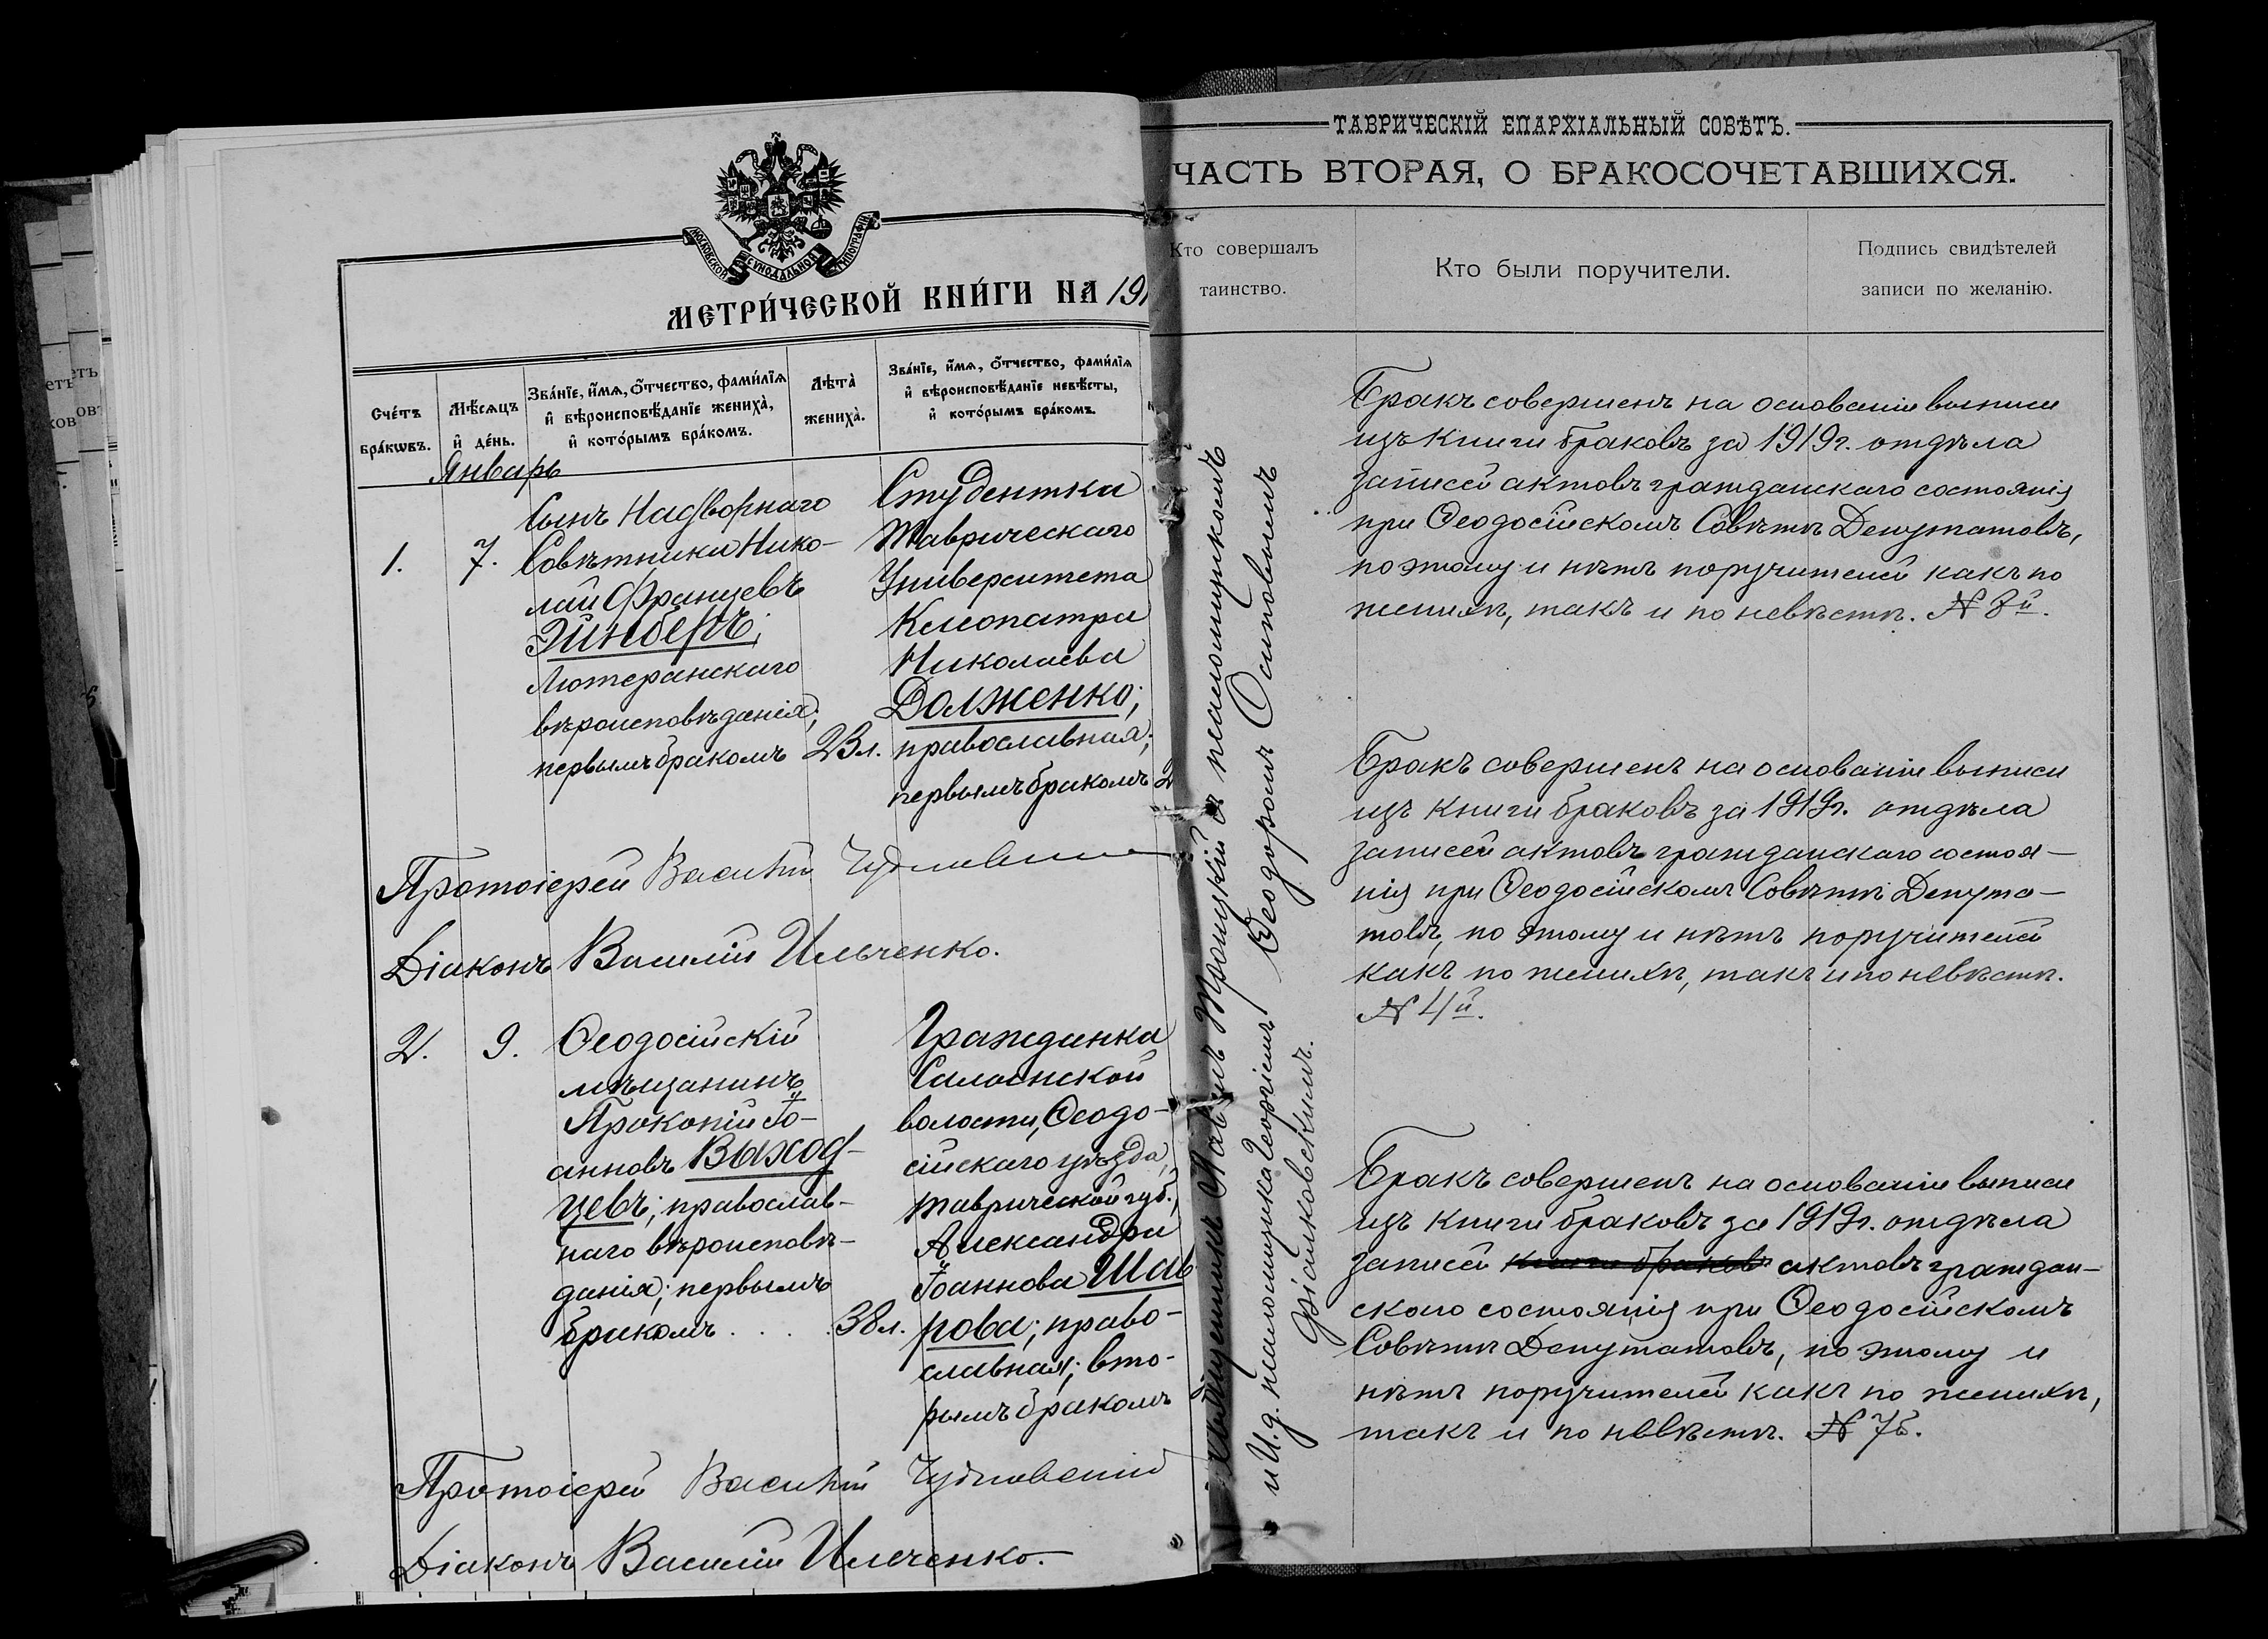 МОСКОВСКОЙ СѴНОДАЛЬНОЙ ТИПОГРАФІИ
МЕТРИ́ЧЕСКОЙ КНИ́ГИ НА 191
Сче́тъ бра́кωвъ.
Мѣ́сѧцъ и҆ де́нь.
Зва́нїе, и҆́мѧ, ѻ҆́тчество, фами́лїѧ
и҆ вѣроисповѣ́данїе жениха̀,
и҆ кото́рымъ бра́комъ.
Лѣта̀ жениха̀.
Зва́нїе, и҆́мѧ, ѻ҆́тчество, фами́лїѧ
и҆ вѣроисповѣ́данїе невѣ́сты,
и҆ кото́рымъ бра́комъ.
Январь
1.
7.
Сынъ Надворнаго
Совѣтника Нико-
лай Францевъ
Эйнберъ;
Лютеранскаго
вѣроисповѣданія;
первымъ бракомъ
23 л.
Студентка
Таврическаго
Университета
Клеопатра
Николаева
Долженко;
православная;
первымъ бракомъ
2
Протоіерей Василій
Діаконъ Василій Ильченко.
2.
9.
Ѳеодосійскій
мѣщанинъ
Прокопій Іо-
анновъ Выход-
цевъ; православ-
наго вѣроисповѣ-
данія; первымъ
бракомъ . . . .
38 л.
Гражданка
Салынской
волости, Ѳеодо-
сійскаго уѣзда,
Таврической губ.,
Александра
Іоаннова Шав
рова; право-
славная; вто-
рымъ бракомъ
Протоіерей Василій
Діаконъ Василій Ильченко.
ТАВРИЧЕСКІЙ ЕПАРХІАЛЬНЫЙ СОВѢТЪ.
ЧАСТЬ ВТОРАЯ, О БРАКОСОЧЕТАВШИХСЯ.
Кто совершалъ
таинство.
Кто были поручители.
Подпись свидѣтелей
записи по желанію.
Троицкій съ псаломщикомъ
Ѳеодоромъ Осиповымъ
и И. д. псаломщика Георгіемъ
Дзіаковскимъ.
Бракъ совершенъ на основаніи выписи
изъ книги браковъ за 1919 г. отдѣла
записей актовъ гражданскаго состоянія
при Ѳеодосійскомъ Совѣтѣ Депутатовъ,
по этому и нѣтъ поручителей какъ по
женихѣ, такъ и по невѣстѣ. № 8й.
Бракъ совершенъ на основаніи выписи
изъ книги браковъ за 1919 г. отдѣла
записей актовъ гражданскаго состоя-
нія при Ѳеодосійскомъ Совѣтѣ Депута-
товъ, по этому и нѣтъ поручителей
какъ по женихѣ, такъ и по невѣстѣ.
№ 4й.
Бракъ совершенъ на основаніи выписи
изъ книги браковъ за 1919 г. отдѣла
записей книги браковъ актовъ граждан-
скаго состоянія при Ѳеодосійскомъ
Совѣтѣ Депутатовъ, по этому и
нѣтъ поручителей какъ по женихѣ,
такъ и по невѣстѣ. № 76.